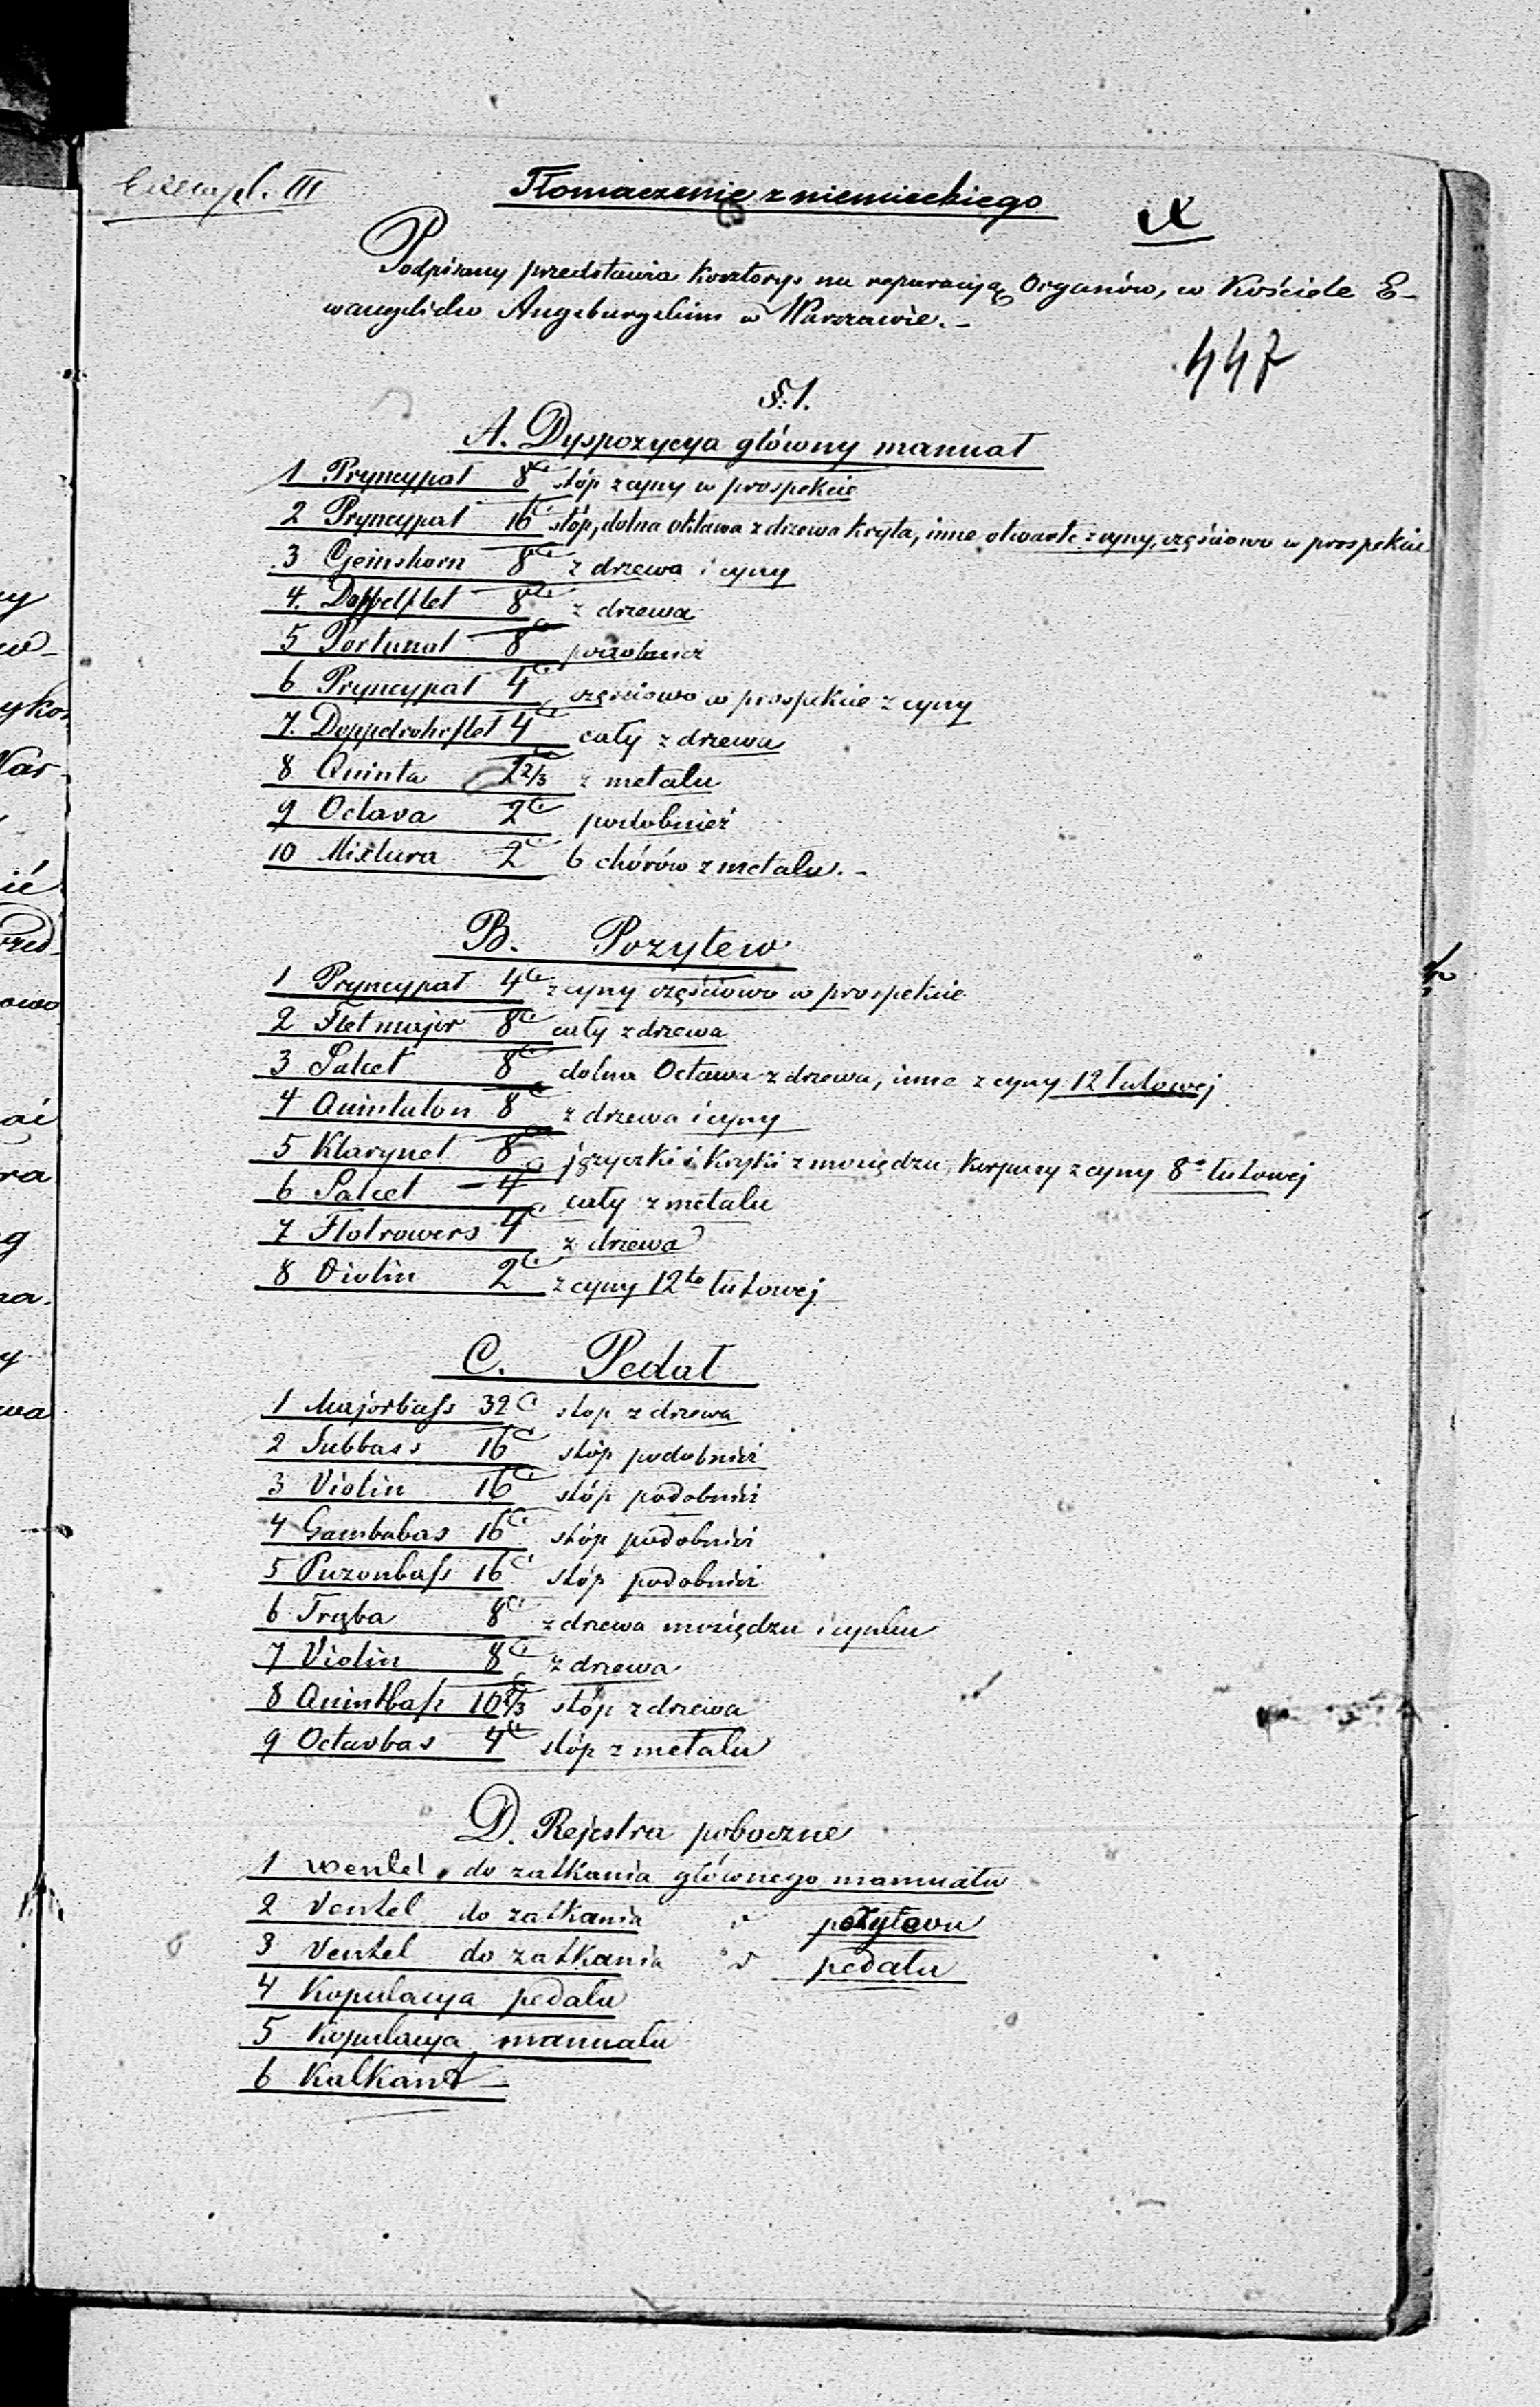 Exempl. III
Tłomaczenie z niemieckiego
IX
Podpisany przedstawia kosztorys na reparacyją Organów, w Kościele E-
wangelicko Augsburgskim w Warszawie.-
447
§.1.
A. Dyspozycya główny manuał
1 Pryncypał 8 stóp z cyny w prospekcie
2 Pryncypał 16 stóp, dolna oktawa z drzewa kryta, inne otwarte z cyny, częściowo w prospekcie
3 Gemshorn 8 z drzewa i cyny
4. Doppelflet 8 z drzewa
5 Portunal 8 podobnież
6 Pryncypał 4 częściowo w prospekcie z cyny
7. Doppelrohrflet 4 cały z drzewa
8 Quinta 2 2/3 z metalu
9 Octava 2 podobnież
10 Mixtura 2 6 chórów z metalu.-
B. Pozytew
1 Pryncypał 4 z cyny częściowo w prospekcie
2 Flet major 8 cały z drzewa
3 Salcet 8 dolna Octawa z drzewa, inne z cyny 12 łutowej
4 Quintaton 8 z drzewa i cyny
5 Klarynet 8 języczki i Krytki z mosiędzu, korpusy z cyny 8º łutowej
6 Salcet 4 cały z metalu
7 Flotrowers 4 z drzewa
8 Violin 2 z cyny 12to łutowej
C. Pedał
1 Majorbass 32 stop z drzewa
2 Subbass 16 stóp podobnież
3 Violin 16 stóp podobnież
4 Gambabas 16 stóp podobnież
5 Puzonbass 16 stóp podobnież
6 Trąba 8 z drzewa mosiędzu i cynku
7 Violin 8 z drzewa
8 Quintbass 10 2/3 stóp z drzewa
9 Octavbas 4 stóp z metalu
D. Rejestra poboczne
1 Wentel do zatkania głównego manuału
2 Ventel do zatkania " pozytewu
3 Ventel do zatkania " pedału
4 Kopulacya pedału
5 Kopulacya manuału
6 Kalkant